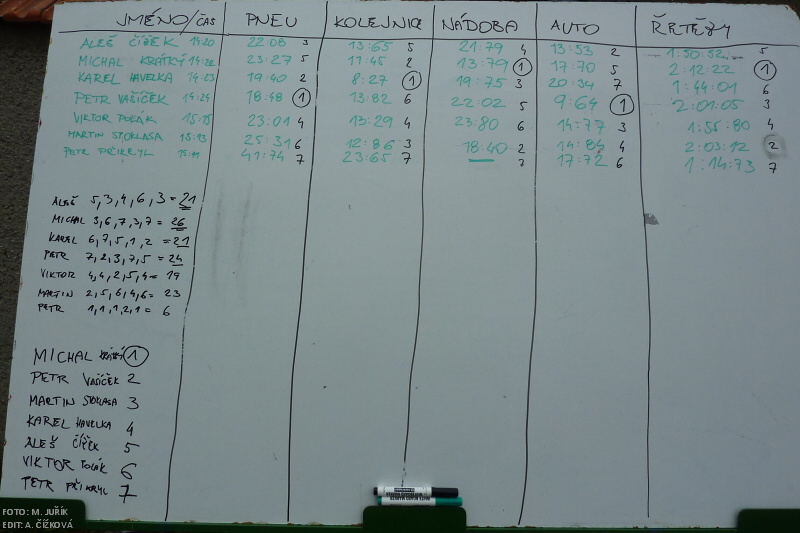 JMÉNO/ČAS PNEU KOLEJNICE NÁDOBA AUTO ŘETĚZY
ALEŠ ČÍŽEK 14:20 22:08 3 13:65 5 21:79 4 13:53 2 1:50:52 5
MICHAL KRÁTKÝ 14:22 23:27 5 11:45 2 13:79 1 17:70 5 2:12:22 1
KAREL HAVELKA 14:23 19:40 2 8:27 1 19:75 3 20:34 7 1:44:01 6
PETR VAŠÍČEK 14:24 18:48 1 13:82 6 22:02 5 9:64 1 2:01:05 3
VIKTOR POLÁK 15:15 23:01 4 13:29 4 23:80 6 14:77 3 1:55:80 4
MARTIN STOKLASA 15:13 25:31 6 12:86 3 18:40 2 14:84 4 2:03:12 2
PETR PŘIKRYL 15:11 41:74 7 23:65 7 — 7 17:72 6 1:14:73 7
ALEŠ 5,3,4,6,3 = 21
MICHAL 3,6,7,3,7 = 26
KAREL 6,7,5,1,2 = 21
PETR 7,2,3,7,5 = 24
VIKTOR 4,4,2,5,4 = 19
MARTIN 2,5,6,4,6 = 23
PETR 1,1,1,2,1 = 6
MICHAL KRÁTKÝ 1
PETR VAŠÍČEK 2
MARTIN STOKLASA 3
KAREL HAVELKA 4
ALEŠ ČÍŽEK 5
VIKTOR POLÁK 6
PETR PŘIKRYL 7
FOTO: M. JUŘÍK
EDIT: A. ČÍŽKOVÁ